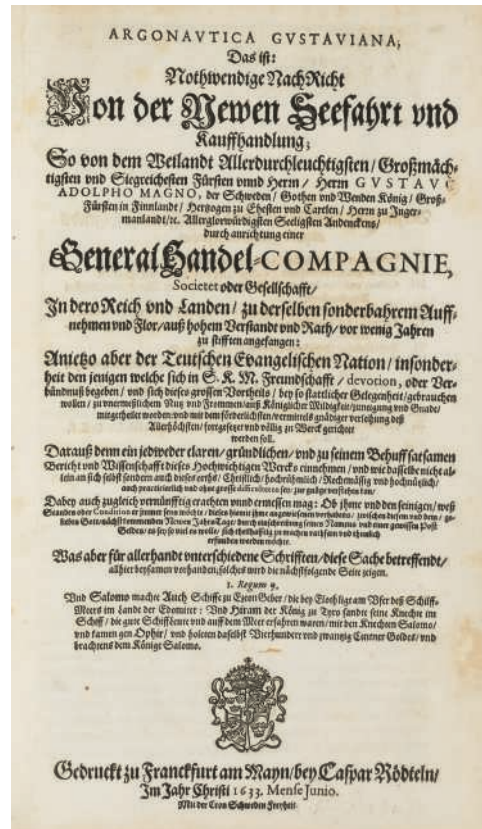 ARGONAVTICA GVSTAVIANA;
Das ist:
Nothwendige NachRicht
Von der Newen Seefahrt vnd
Kauffhandlung;
So von dem Weilandt Allerdurchleuchtigsten/ Großmäch-
tigsten vnd Siegreichesten Fürsten vnnd Herrn/ Herrn GVSTAVO
ADOLPHO MAGNO, der Schweden/ Gothen vnd Wenden König/ Groß-
Fürsten in Finnlandt/ Hertzogen zu Ehesten vnd Carelen/ Herrn zu Inger-
manlandt/ꝛc. Allerglorwürdigsten Seeligsten Andenckens/
durch anrichtung einer
General Handel-COMPAGNIE,
Societet oder Gesellschafft/
In dero Reich vnd Landen/ zu derselben sonderbahrem Auff-
nehmen vnd Flor/ auß hohem Verstandt vnd Rath/ vor wenig Jahren
zu stifften angefangen:
Anietzo aber der Teutschen Evangelischen Nation/ insonder-
heit den jenigen welche sich in S. K. M. Freundschafft/ devotion, oder Ver-
bündnuß begeben/ vnd sich dieses grossen Vortheils/ bey so stattlicher Gelegenheit/ gebrauchen
wollen/ zu vnermeßlichem Nutz vnd Frommen/ auß Königlicher Mildigkeit/ zuneigung vnd Gnade/
mitgetheilet worden: vnd mit dem förderlichsten/ vermittels gnädiger verleihung deß
Allerhöchsten/ fortgesetzet vnd völlig zu Werck gerichtet
werden soll.
Darauß denn ein jedweder claren/ gründlichen/ vnd zu seinem Behuff satsamen
Bericht vnd Wissenschafft dieses Hochwichtigen Wercks einnehmen/ vnd wie dasselbe nicht al-
lein an sich selbst sondern auch dieses orths/ Christlich/ hochrühmlich/ Rechtmässig vnd hochnützlich/
auch practicirlich vnd ohne grosse difficulteten sey/ zur gnüge verstehen kan/
Dabey auch zugleich vernünfftig erachten vnnd ermessen mag: Ob ihme vnd den seinigen/ weß
Standes oder Condition er immer seyn möchte/ dieses hierin ihme angewiesenen vortheils/ zwischen diesem vnd dem/ ge-
liebts Gott/ nächst kommenden Newen Jahrs Tage/ durch einschreibung seines Namens vnd einer gewissen Post
Geldes/ es sey so viel es wolle/ sich theilhafftig zu machen rathsam vnd thunlich
erfunden werden möchte.
Was aber für allerhandt vnterschiedene Schrifften/ diese Sache betreffendt/
allhier beysamen vorhanden/ solches wird die nächstfolgende Seite zeigen.
1. Regum 9.
Vnd Salomo machte Auch Schiffe zu Ezeon Geber/ die bey Eloth ligt am Vfer deß Schilff-
Meers im Lande der Edomiter: Vnd Hiram der König zu Tyro sandte seine Knechte im
Schiff/ die gute Schiffleute vnd auff dem Meer erfahren waren/ mit den Knechten Salomo/
vnd kamen gen Ophir/ vnd holeten daselbst Vierhundert vnd zwantzig Centner Goldes/ vnd
brachtens dem Könige Salomo.
Gedruckt zu Franckfurt am Mayn/ bey Caspar Rödteln/
Im Jahr Christi 1633. Mense Junio.
Mit der Cron Schweden Freyheit.